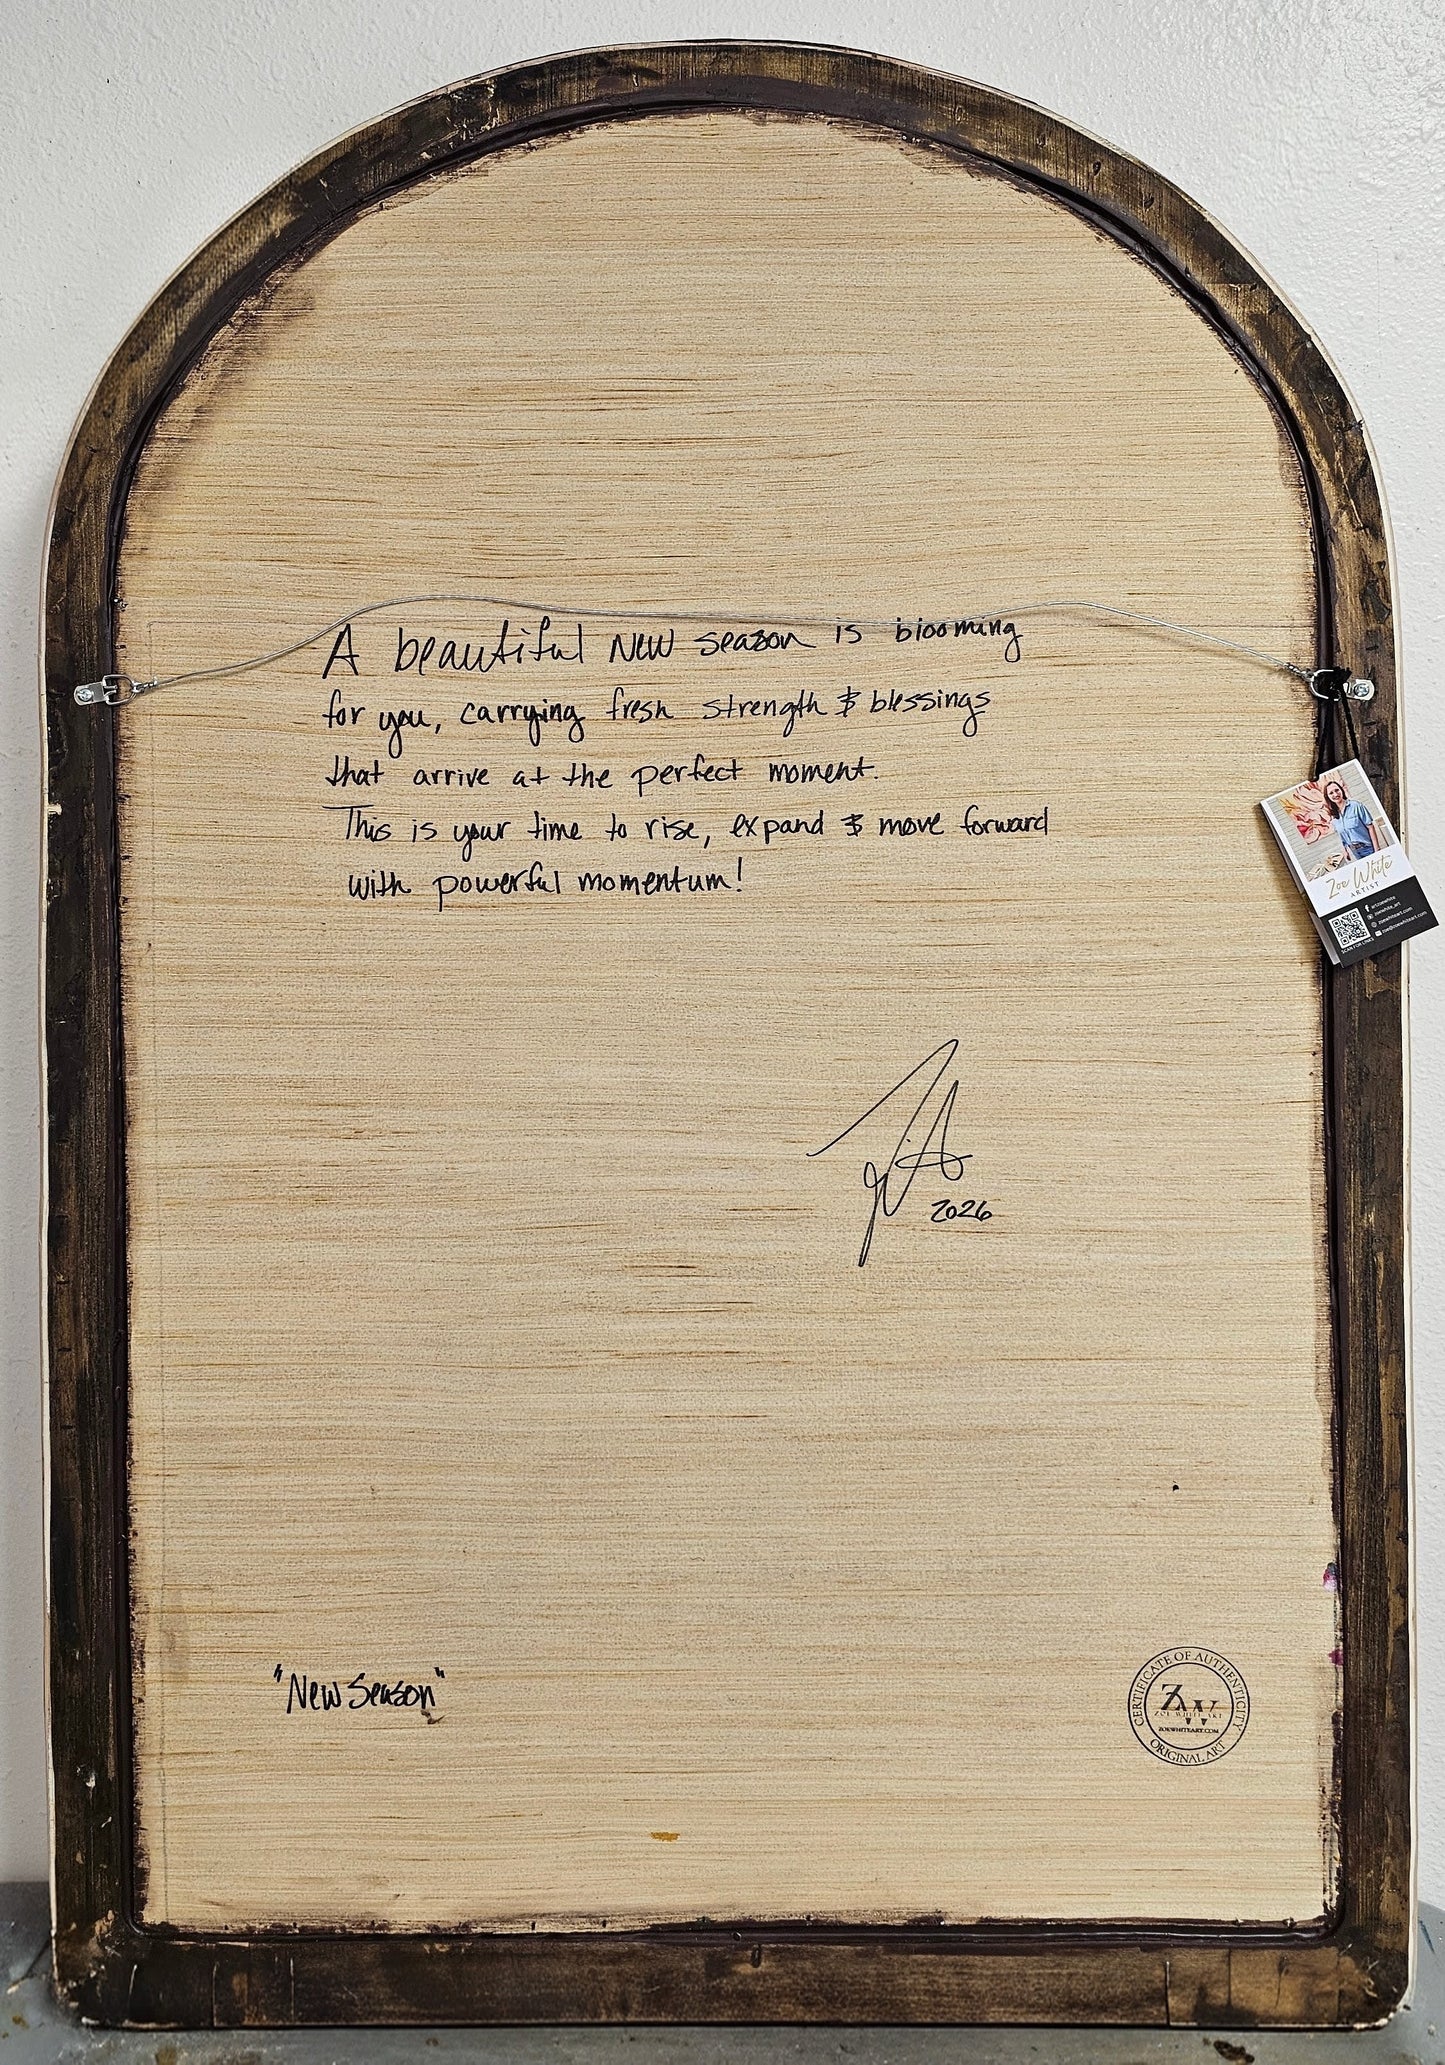 A beautiful New season is blooming
for you, carrying fresh strength & blessings
that arrive at the perfect moment.
This is your time to rise, expand & move forward
with powerful momentum!
Zoe White
ARTIST
artzoewhite
zoewhite_art
zoewhiteart.com
zoe@zoewhiteart.com
SCAN FOR LINKS
2026
"New Season"
CERTIFICATE OF AUTHENTICITY
ZW
ZOE WHITE ART
ZOEWHITEART.COM
ORIGINAL ART